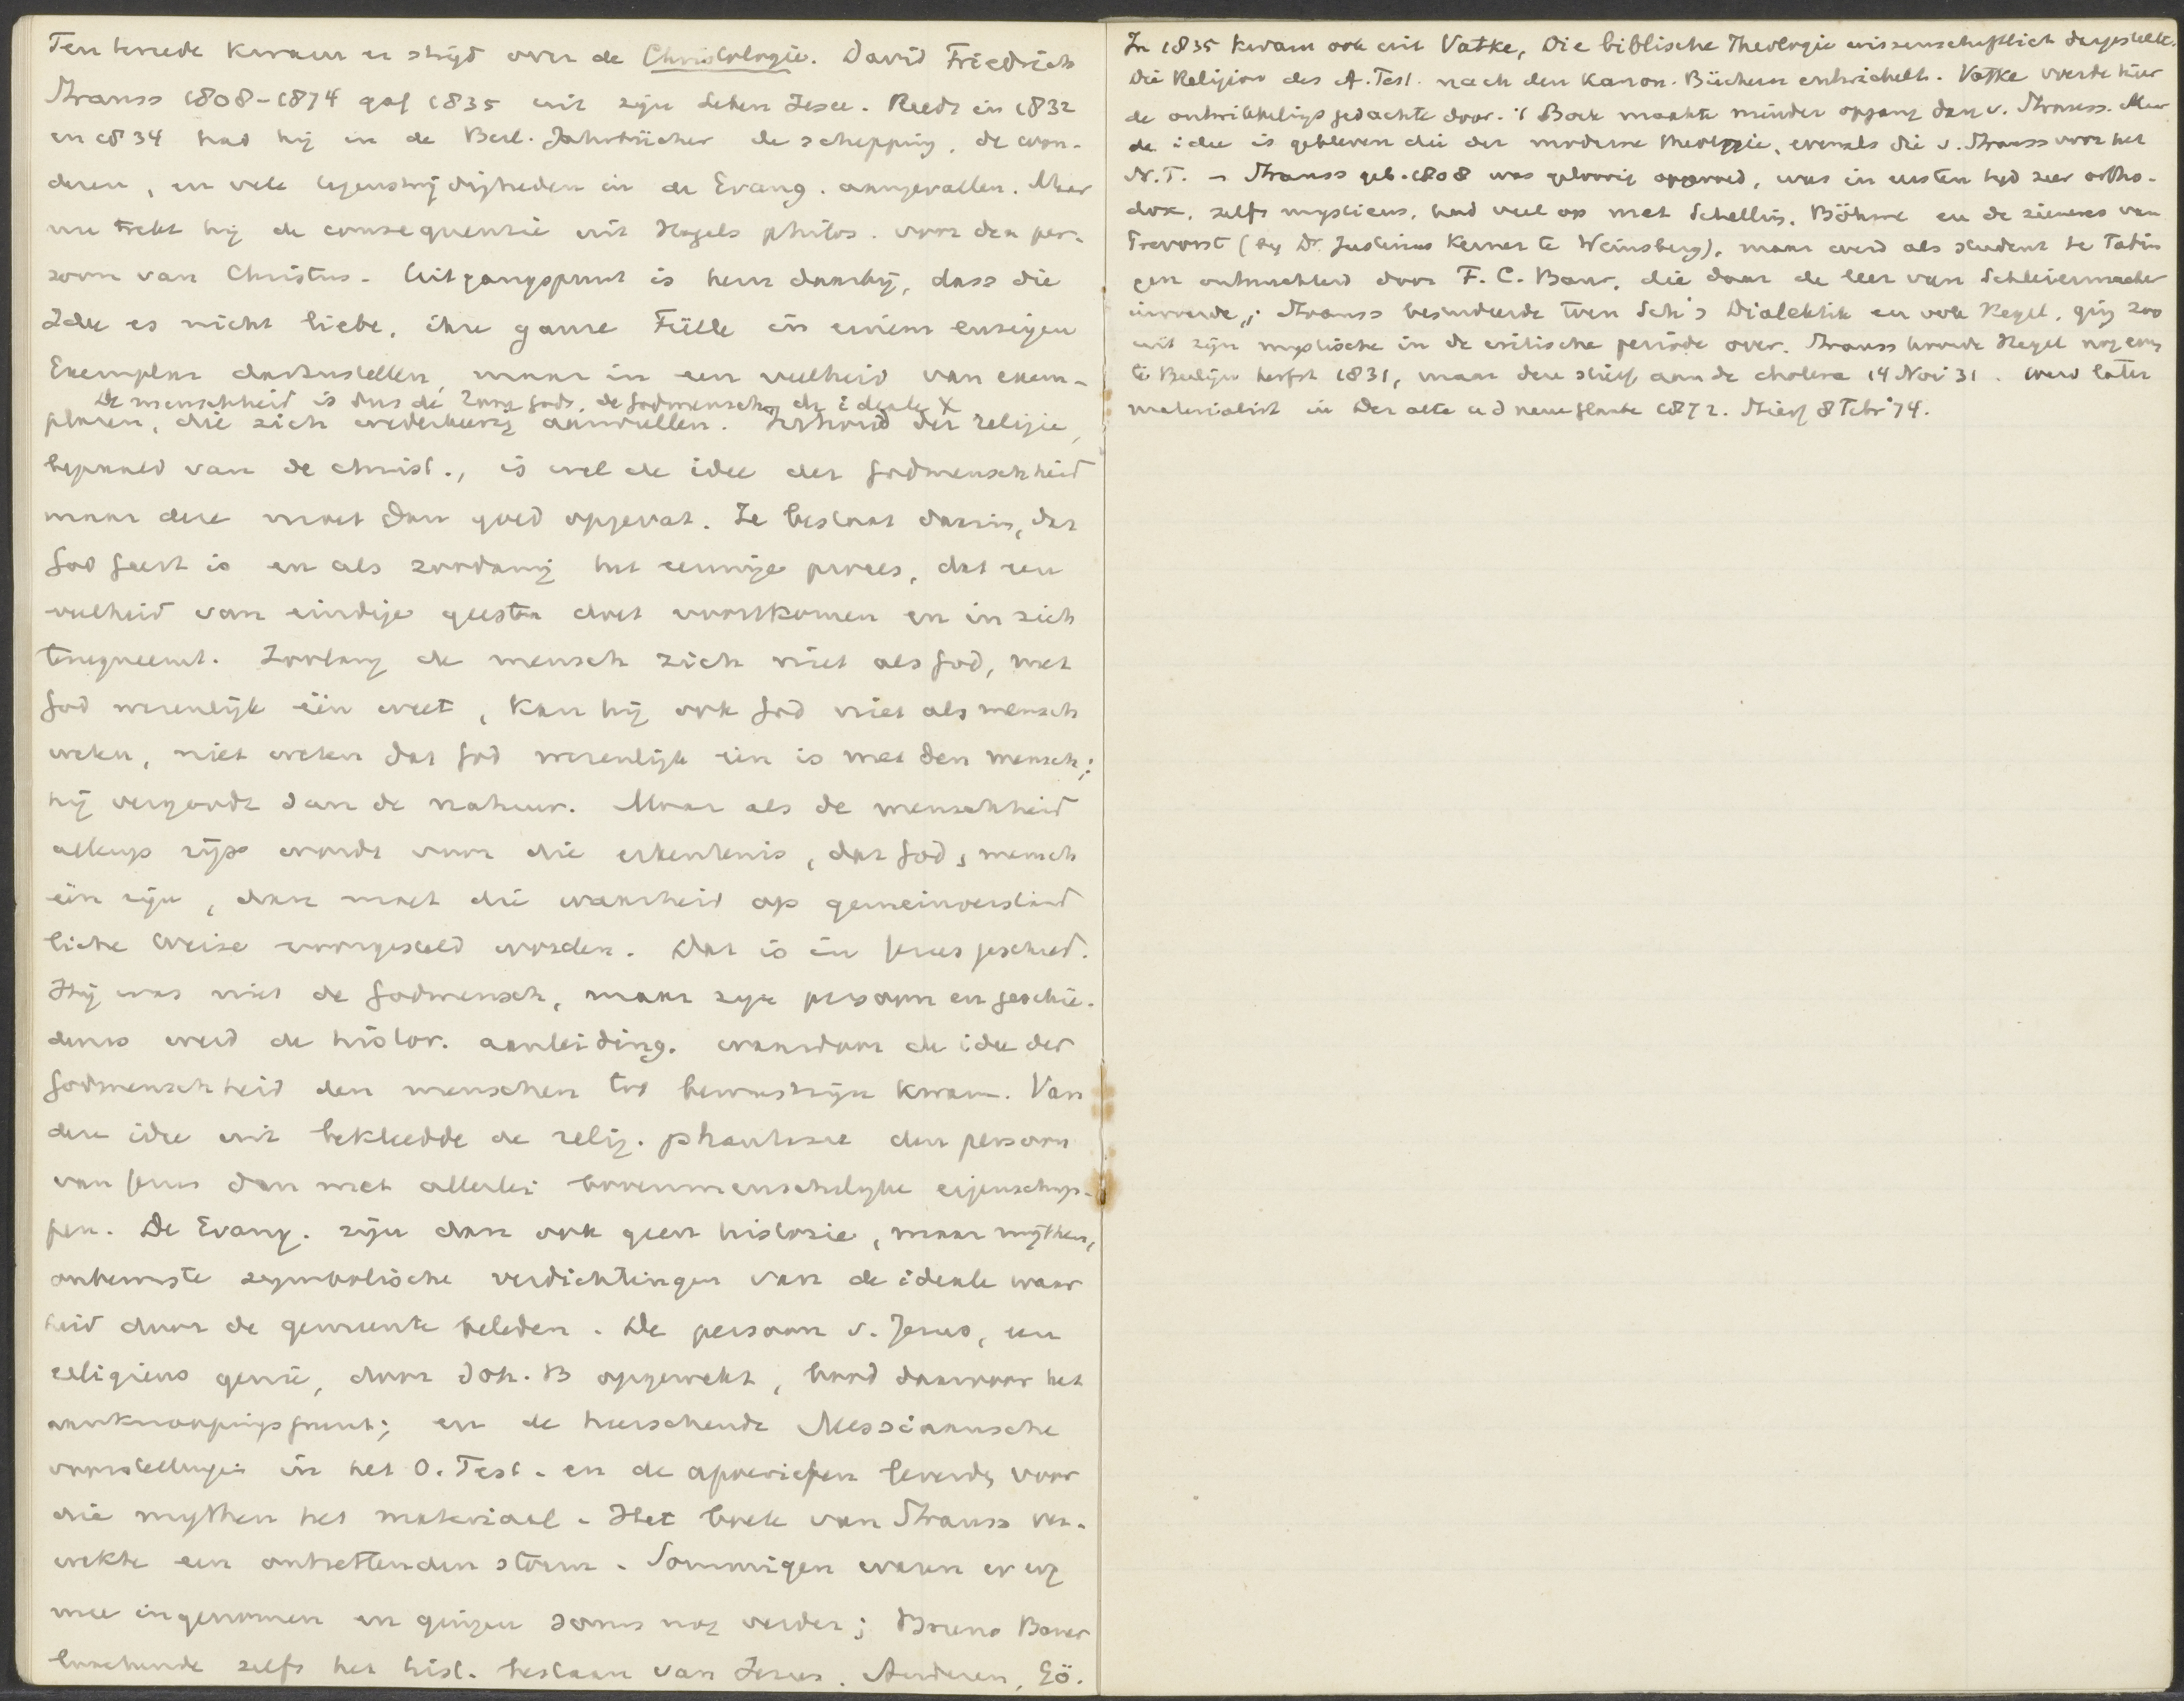 Ten tweede kwam er strijd over de Christologie. David Friedrich
Strauss 1808-1874 gaf 1835 uit zijn Leben Jesu. Reeds in 1832
en 1834 had hij in de Berl. Jahrbücher de schepping, de won-
deren, en vele tegenstrijdigheden in de Evang. aangevallen. Maar
nu trekt hij de consequentie uit Hegels philos. voor den per-
soon van Christus. Uitgangspunt is hem daarbij, dass die
Idee es nicht liebt, ihre ganze Fülle in einem einzigen
Exemplar darzustellen, maar in een veelheid van exem-
De menschheid is dus de Zoon Gods, de Godmensch, de ideale X
plaren, die zich wederkeerig aanvullen. Inhoud der religie,
bepaald van de christ., is wel de idee der Godmenschheid
maar deze moet dan goed opgevat. Ze bestaat daarin, dat
God Geest is en als zoodanig het eeuwige proces, dat een
veelheid van eindige geesten doet voortkomen en in zich
terugneemt. Zoolang de mensch zich niet als God, met
God wezenlijk één weet, kan hij ook God niet als mensch
weten, niet weten dat God wezenlijk één is met den mensch;
hij vergoodt dan de natuur. Maar als de menschheid
allengs rijp wordt voor die erkentenis, dat God, mensch
één zijn, dan moet die waarheid op gemeinverständ
liche Weise voorgesteld worden. Dat is in Jezus geschied.
Hij was niet de Godmensch, maar zijn persoon en geschie-
denis werd de histor. aanleiding, waardoor de idee der
Godmenschheid den menschen tot bewustzijn kwam. Van
deze idee uit bekleedde de relig. phantasie den persoon
van Jezus dan met allerlei bovenmenschelijke eigenschap-
pen. De Evang. zijn dan ook geen historie, maar mythen,
onbewuste symbolische verdichtingen van de ideale waar
heid door de gemeente beleden. De persoon v. Jezus, een
religieus genie, door Joh. B opgewekt, bood daarvoor het
aanknoopingspunt; en de heerschende Messiaansche
voorstellingen in het O. Test. en de apocriefen leverde voor
die mythen het materiaal. Het boek van Strauss ver-
wekte een ontzettenden storm. Sommigen waren er erg
mee ingenomen en gingen soms nog verder; Bruno Bauer
loochende zelfs het hist. bestaan van Jezus. Anderen, Gö.
In 1835 kwam ook uit Vatke, Die biblische Theologie wissenschaftlich dargestellt.
Die Religion des A. Test. nach den Kanon. Büchern entwickelt. Vatke voerde hier
de ontwikkelingsgedachte door. 't Boek maakte minder opgang dan v. Strauss. Maar
de idee is gebleven die der moderne theologie, evenals die v. Strauss voor het
N.T. - Strauss geb. 1808 was geloovig opgevoed, was in eersten tijd zeer ortho-
dox, zelfs mysticus, had veel op met Schelling, Böhme en de zieneres van
Prevorst (bij Dr. Justinus Kerner te Weinsberg), maar werd als student te Tübin
gen ontnuchterd door F. C. Baur, die daar de leer van Schleiermacher
invoerde; Strauss bestudeerde toen Schl's Dialektik en ook Hegel, ging zoo
uit zijn mystische in de critische periode over. Strauss hoorde Hegel nog even
te Berlijn herfst 1831, maar deze stierf aan de cholera 14 Nov 31. werd later
materialist in Der alte u d neue Glaube 1872. Stierf 8 Febr '74.